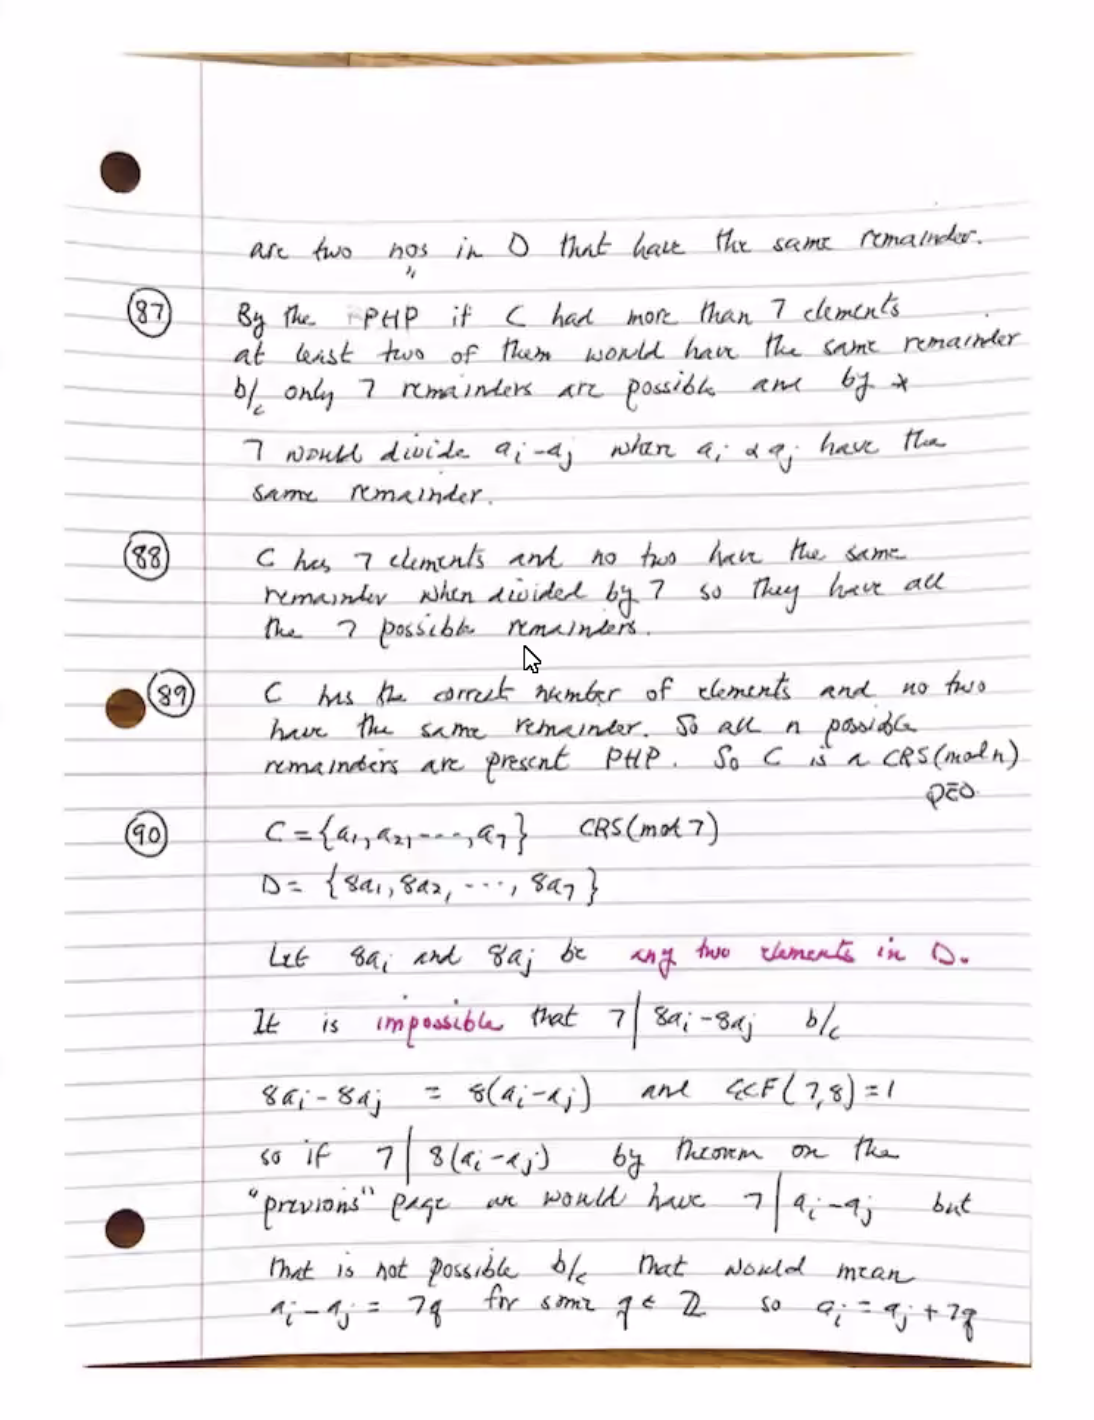 are two nos in D that have the same remainder.
"
87 By the PHP if C had more than 7 elements
at least two of them would have the same remainder
b/c only 7 remainders are possible and by *
7 would divide ai-aj when ai & aj have the
same remainder.
88 C has 7 elements and no two have the same
remainder when divided by 7 so they have all
the 7 possible remainders.
89 C has the correct number of elements and no two
have the same remainder. So all n possible
remainders are present PHP. So C is a CRS(mod n)
QED
90 C = {a1, a2, ----, a7} CRS(mod 7)
D = {8a1, 8a2, ---, 8a7}
Let 8ai and 8aj be any two elements in D.
It is impossible that 7 | 8ai-8aj b/c
8ai - 8aj = 8(ai-aj) and GCF(7,8)=1
so if 7 | 8(ai-aj) by theorem on the
"previous" page we would have 7 | ai-aj but
that is not possible b/c that would mean
ai-aj = 7q for some q ∈ ℤ so ai = aj + 7q